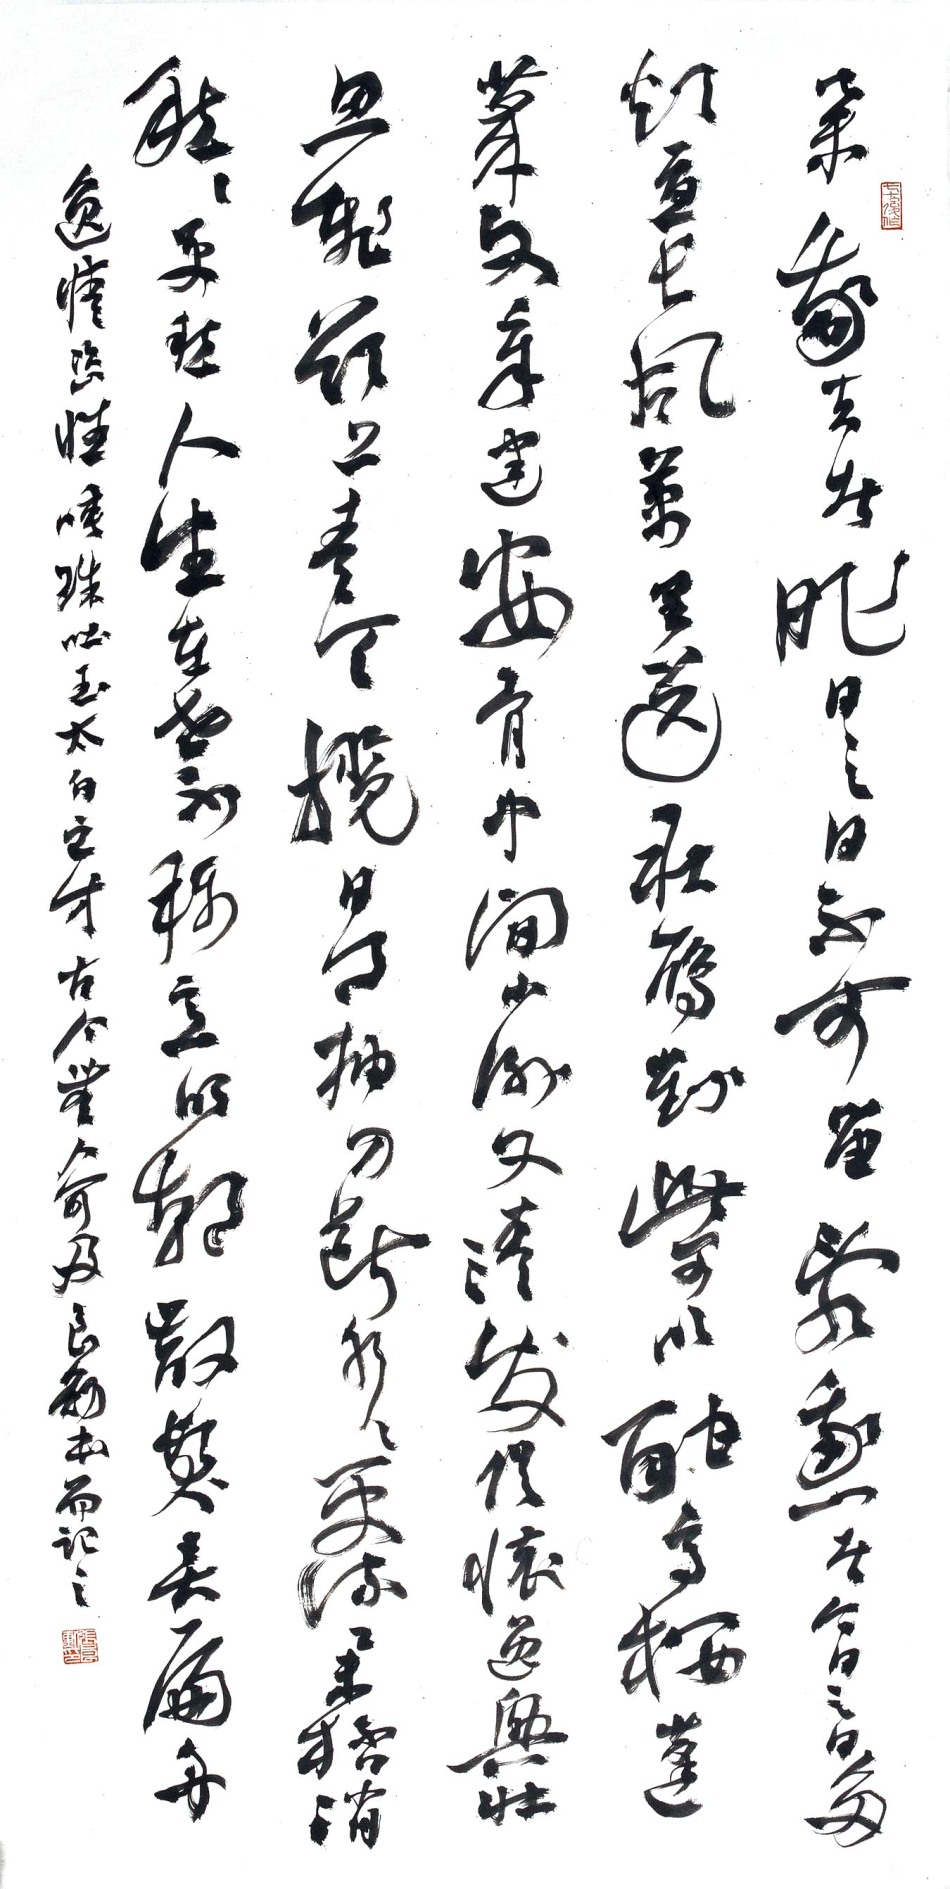 棄我去者昨日之日不可留亂我心者今日之日多
煩憂長風萬里送秋雁對此可以酣高樓蓬
萊文章建安骨中間小謝又清發俱懷逸興壯
思飛欲上青天攬日月抽刀斷水〻更流舉杯消
愁〻更愁人生在世不稱意明朝散髮弄扁舟
逸情恣性咳珠唾玉太白之才古今無人可及良勛書而記之